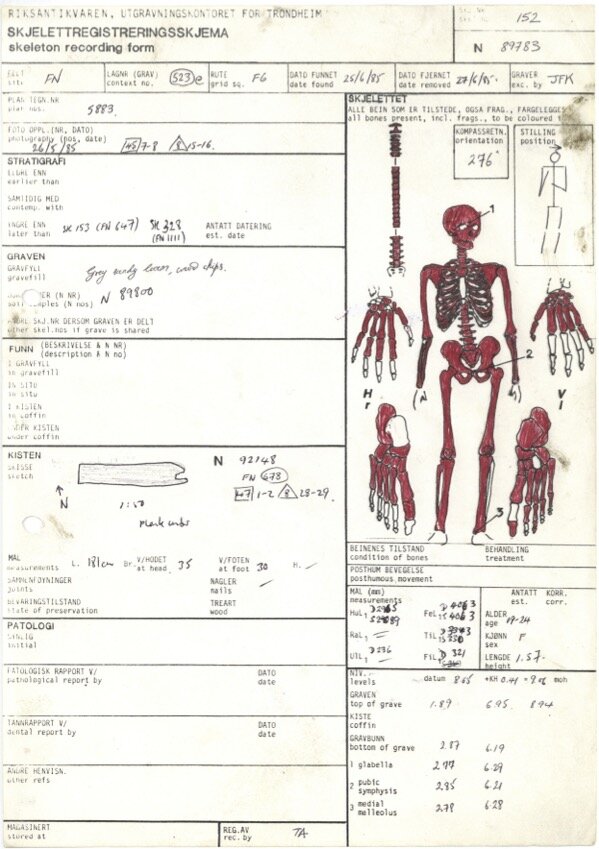 RIKSANTIKVAREN, UTGRAVNINGSKONTORET FOR TRONDHEIM
SKJELETTREGISTRERINGSSKJEMA
skeleton recording form
152
N 89783
FELT
site FN
LAGNR (GRAV)
context no. 523 e
RUTE
grid sq. F6
DATO FUNNET
date found 25/6/85
DATO FJERNET
date removed 27/6/85.
GRAVER
exc. by JFK
PLAN TEGN.NR
plan nos. 5883
FOTO OPPL.(NR, DATO)
photography (nos, date)
26/5/85 45 7-8 8 15-16.
STRATIGRAFI
ELDRE ENN
earlier than
SAMTIDIG MED
contemp. with
YNGRE ENN
later than SK 153 (FN 647) SK 328
(FN 1111)
ANTATT DATERING
est. date
GRAVEN
GRAVFYLL
gravefill Grey sandy loam, wood chips.
(N NR)
samples (N nos) N 89800
SKJ.NR DERSOM GRAVEN ER DELT
other skel.nos if grave is shared
FUNN (BESKRIVELSE & N NR)
(description & N no)
I GRAVFYLL
in gravefill
IN SITU
in situ
I KISTEN
in coffin
UNDER KISTEN
under coffin
KISTEN
SKISSE
sketch
N 92148
FN 678
47 1-2 8 28-29.
N
1:50
MÅL
measurements L. 181cm Br. V/HODET
at head 35
V/FOTEN
at foot 30 H. –
SAMMENFØYNINGER
joints
NAGLER
nails –
BEVARINGSTILSTAND
state of preservation
TREART
wood
PATOLOGI
SYNLIG
initial
PATOLOGISK RAPPORT V/
pathological report by
DATO
date
TANNRAPPORT V/
dental report by
DATO
date
ANDRE HENVISN.
other refs
MAGASINERT
stored at
REG.AV
rec. by TA
SKJELETTET
ALLE BEIN SOM ER TILSTEDE, OGSA FRAG., FARGELEGGES
all bones present, incl. frags., to be coloured
KOMPASSRETN.
orientation
276°
STILLING
position
1
2
3
H
r
V
l
BEINENES TILSTAND
condition of bones
BEHANDLING
treatment
POSTHUM BEVEGELSE
posthumous movement
MÅL (mm)
measurements
ANTATT KORR.
est. corr.
HuL
FeL
RaL –
TiL
UlL D 236
FiL D 321
ALDER
age 19-24
KJØNN F
sex
LENGDE 1.57.
height
NIV.
levels datum 8.65 +KH 0.41 = 9.06 moh
GRAVEN
top of grave 1.89 6.95 8.94
KISTE
coffin
GRAVBUNN
bottom of grave 2.87 6.19
1 glabella 2.77 6.29
2 pubic
symphysis 2.85 6.21
3 medial
malleolus 2.78 6.28